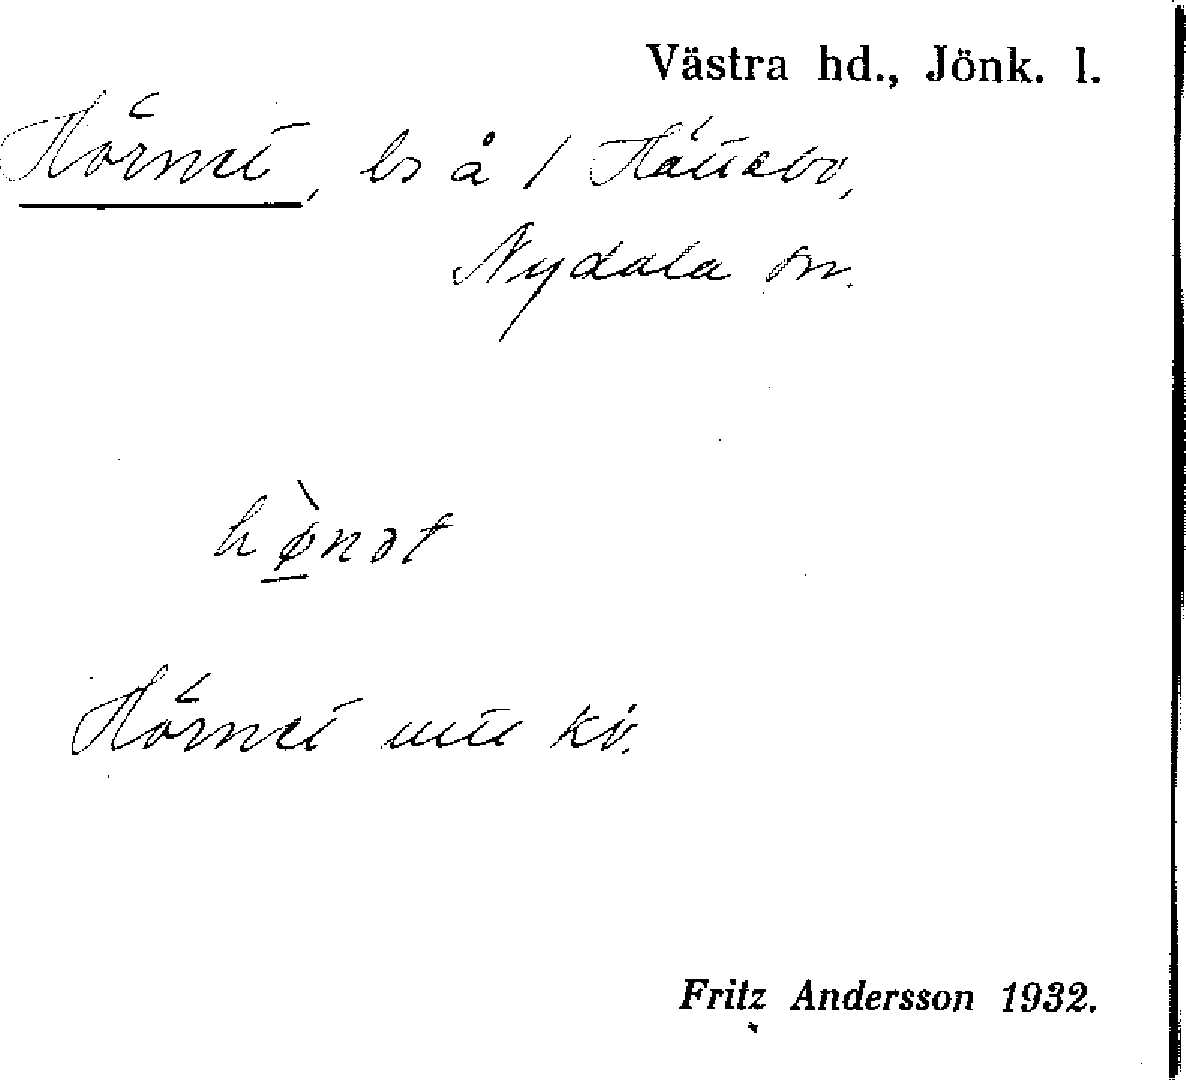 Västra hd., Jönk. l.
Hörnet, ls å / Hättebo,
Nydala sn.
hø̱̀nət
Hörnet utte kö.
Fritz Andersson 1932.